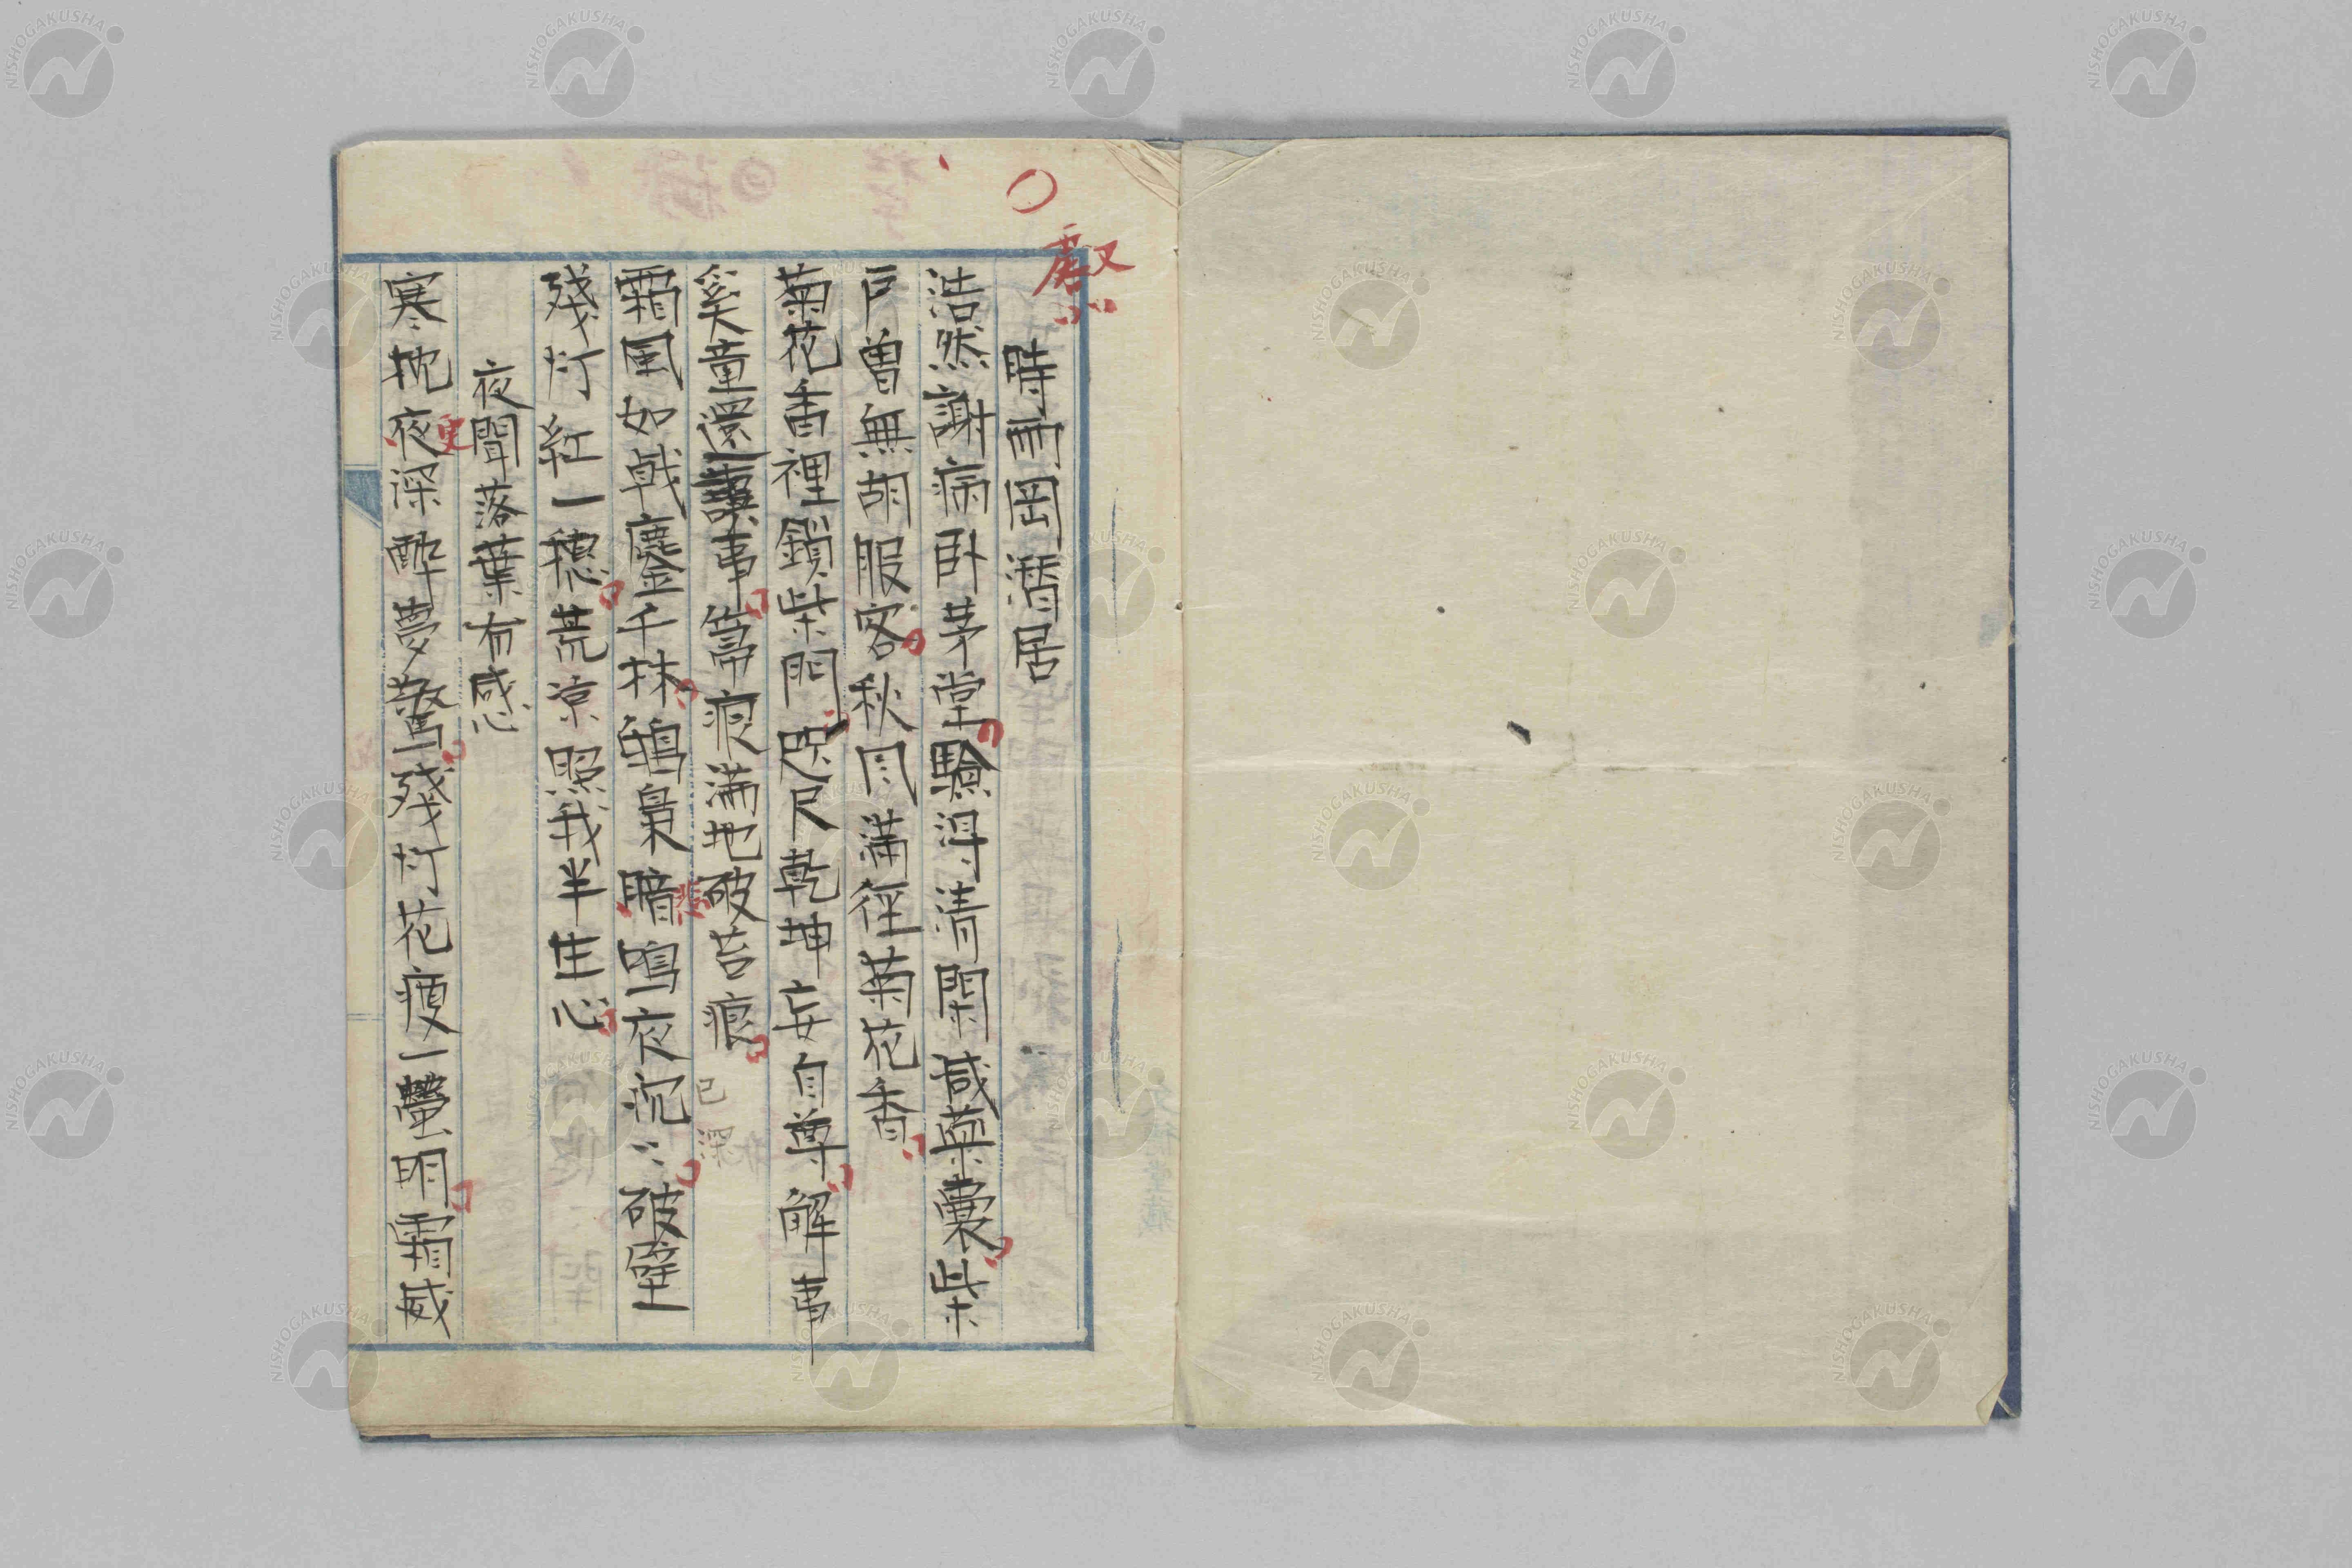 時雨岡潜居
浩然謝病臥茅堂驗得清閑减藥嚢柴
戸曽無胡服客秋風満徑菊花香
菊花香裡鎖柴門咫尺乾坤妄自尊解事
奚童還事箒痕満地破苔痕
霜風如戟鏖千林鵂梟暗鳴夜沉〻破壁
残灯紅一穂荒凉照我半生心
夜聞落葉有感
寒枕夜深酔夢驚残灯花痩一螢明霜威
更
悲
已深
NISHOGAKUSHA